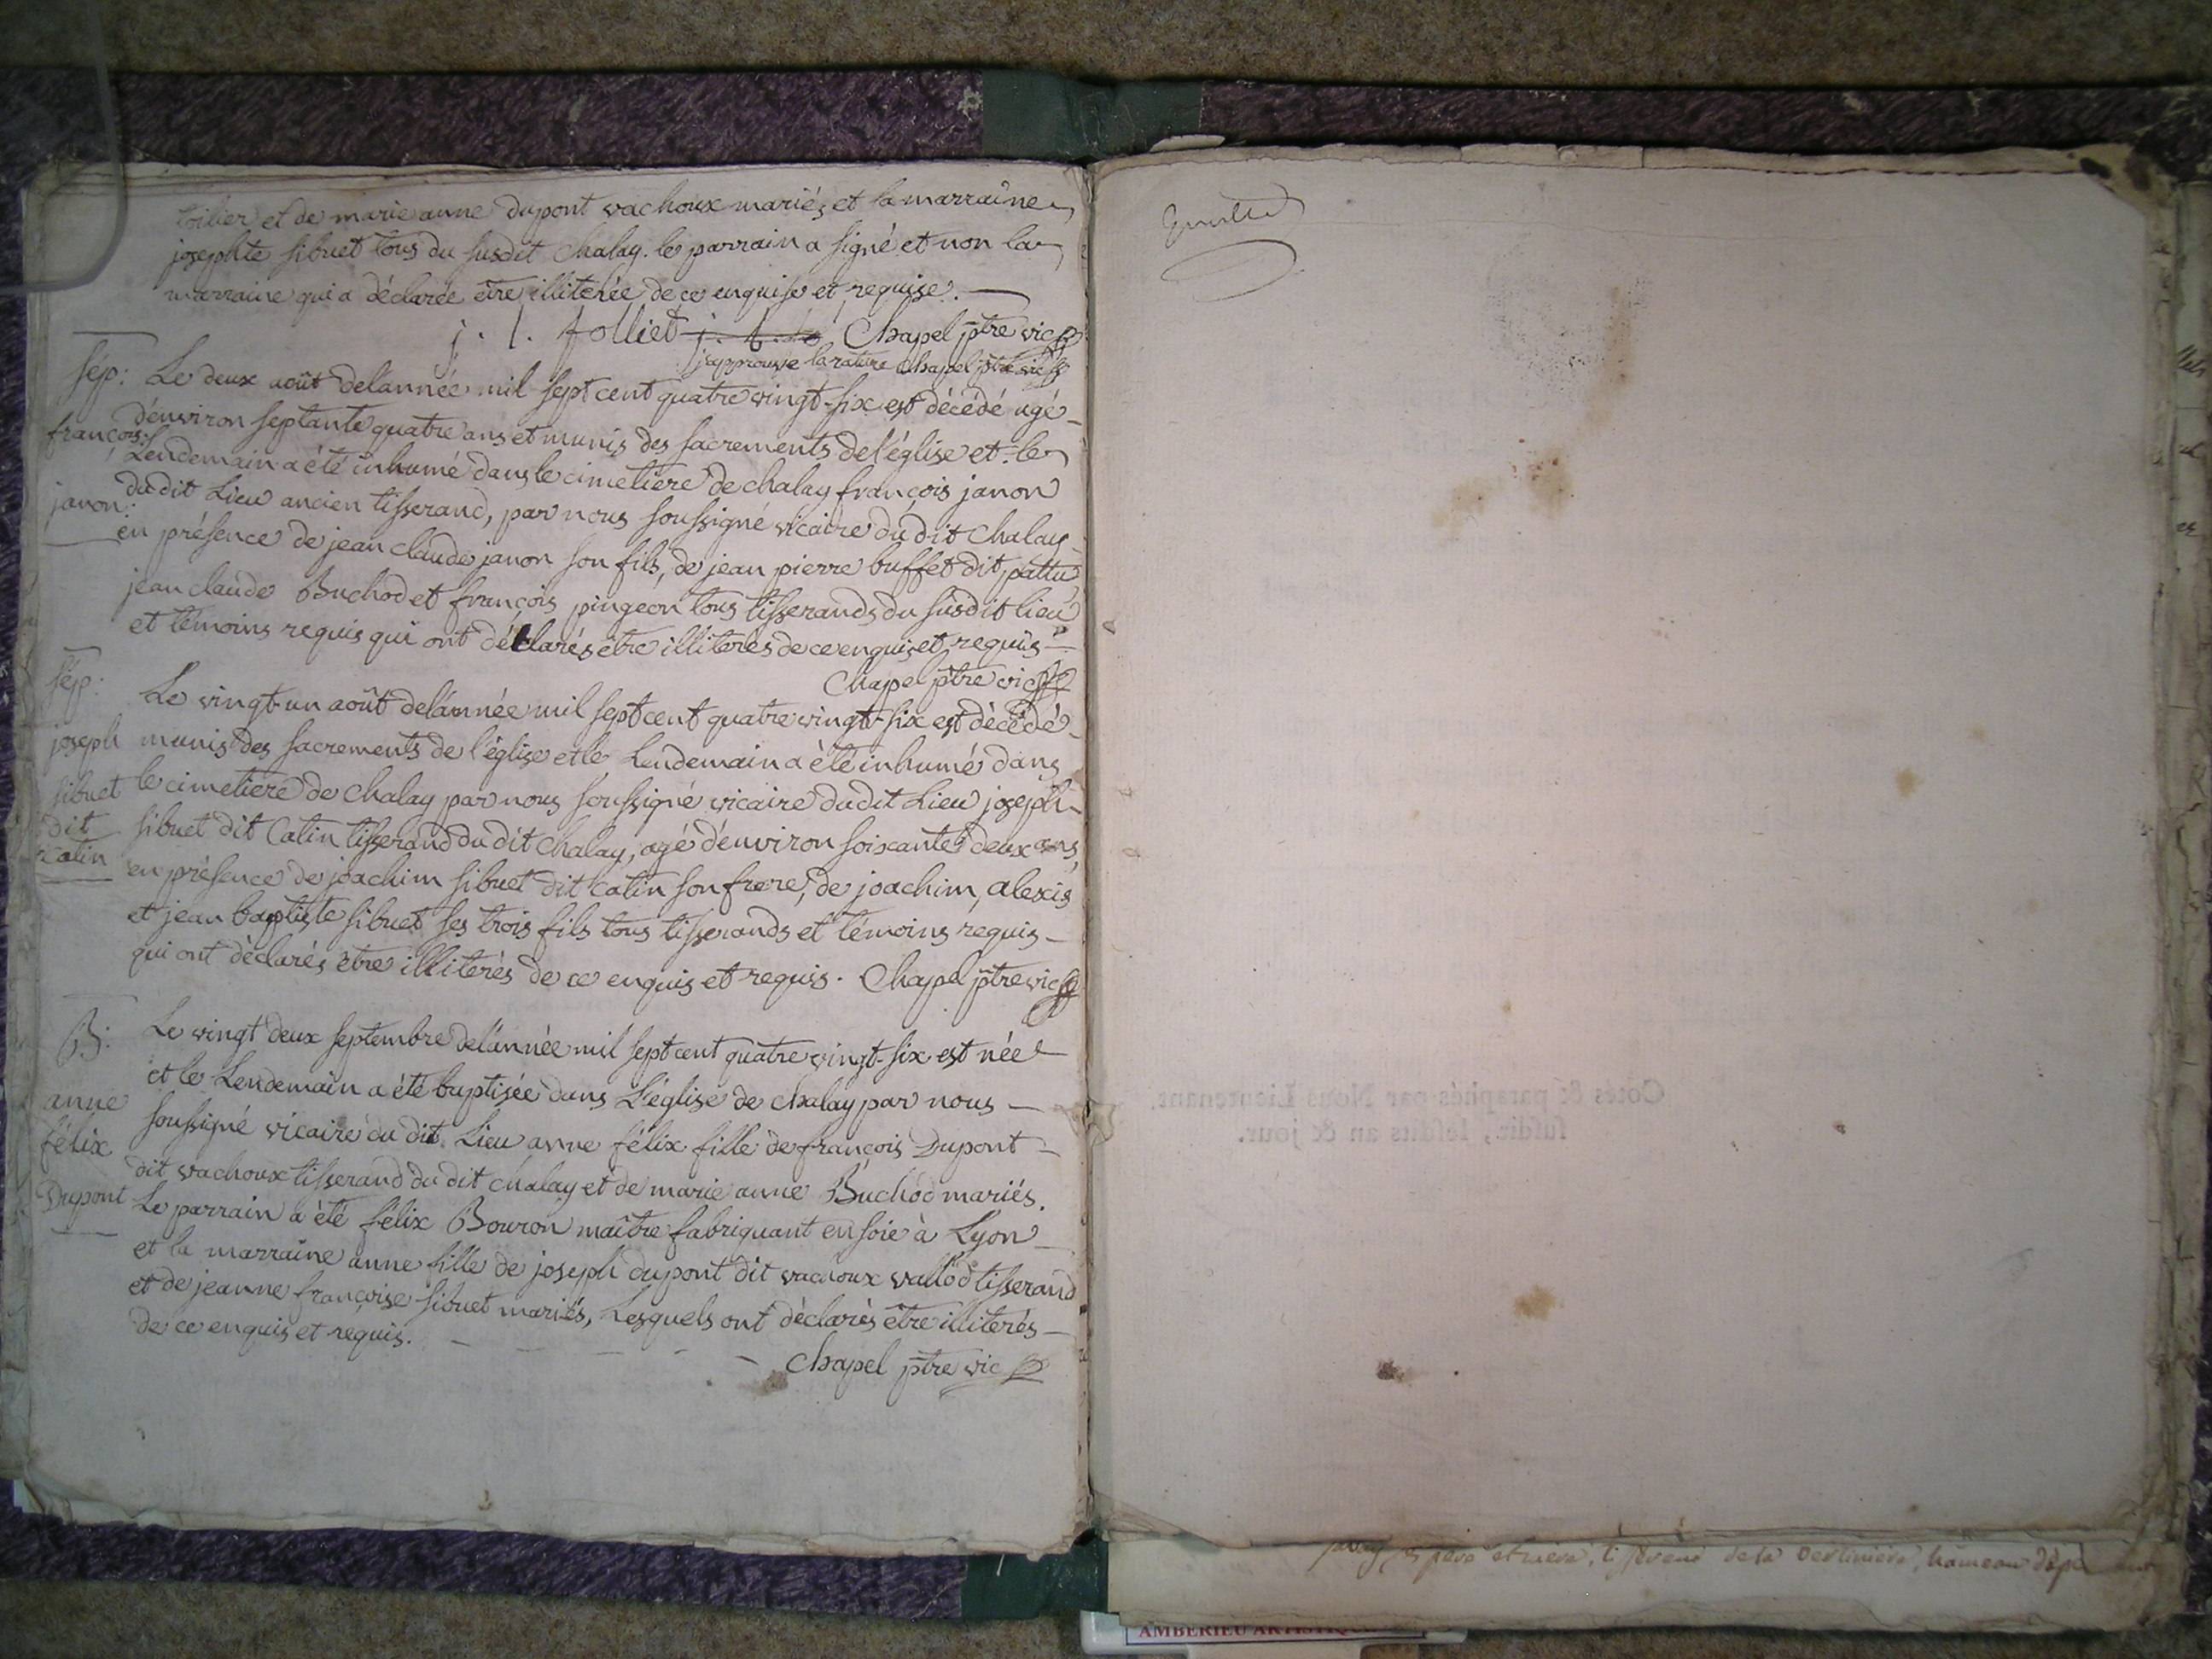 toilier et de marie anne dupont vachoux mariés et la marraine
josephte sibuet tous du susdit Chalay. le parrain a signé et non la
marraine qui a déclarée être illiterée de ce enquise et requise.
j. l. folliet Chapel ptre vic
j'approuve la rature Chapel ptre vic
Sép: Le deux août de l'année mil sept cent quatre vingt-six est décédé agé
d'environ septante quatre ans et munis des sacrements de l'église et le
françois Lendemain a été inhumé dans le cimetiere de chalay françois janon
janon du dit Lieu ancien tisserand, par nous soussigné vicaire du dit Chalay
en présence de jean claude janon son fils, de jean pierre buffet dit pattu
jean claude Buchod et françois pingeon tous tisserands du susdit lieu
et témoins requis qui ont déclarés être illiterés de ce enquis et requis
Chapel ptre vic
Sép: Le vingt-un août de l'année mil sept cent quatre vingt-six est décédé
joseph munis des sacrements de l'église et le Lendemain a été inhumé dans
sibuet le cimetiere de Chalay par nous soussigné vicaire du dit Lieu joseph
dit sibuet dit Catin tisserand du dit Chalay, agé d'environ soixante deux ans,
Catin en présence de joachim sibuet dit Catin son frere, de joachim, alexis
et jean baptiste sibuet ses trois fils tous tisserands et témoins requis
qui ont déclarés être illiterés de ce enquis et requis. Chapel ptre vic
B: Le vingt deux septembre de l'année mil sept cent quatre vingt-six est née
et le Lendemain a été baptisée dans L'église de chalay par nous
anne soussigné vicaire du dit Lieu anne félix fille de françois Dupont
félix dit vachoux tisserand du dit chalay et de marie anne Buchod mariés.
Dupont Le parrain a été félix Bouron maître fabriquant en soie à Lyon
et la marraine anne fille de joseph dupont dit vachoux vallod tisserand
et de jeanne françoise sibuet mariés, Lesquels ont déclarés être illiterés
de ce enquis et requis.
Chapel ptre vic
Cotés & paraphés par Nous Lieutenant,
susdit, lesdits an & jour.
pere et mere, de la hameau
AMBERIEU